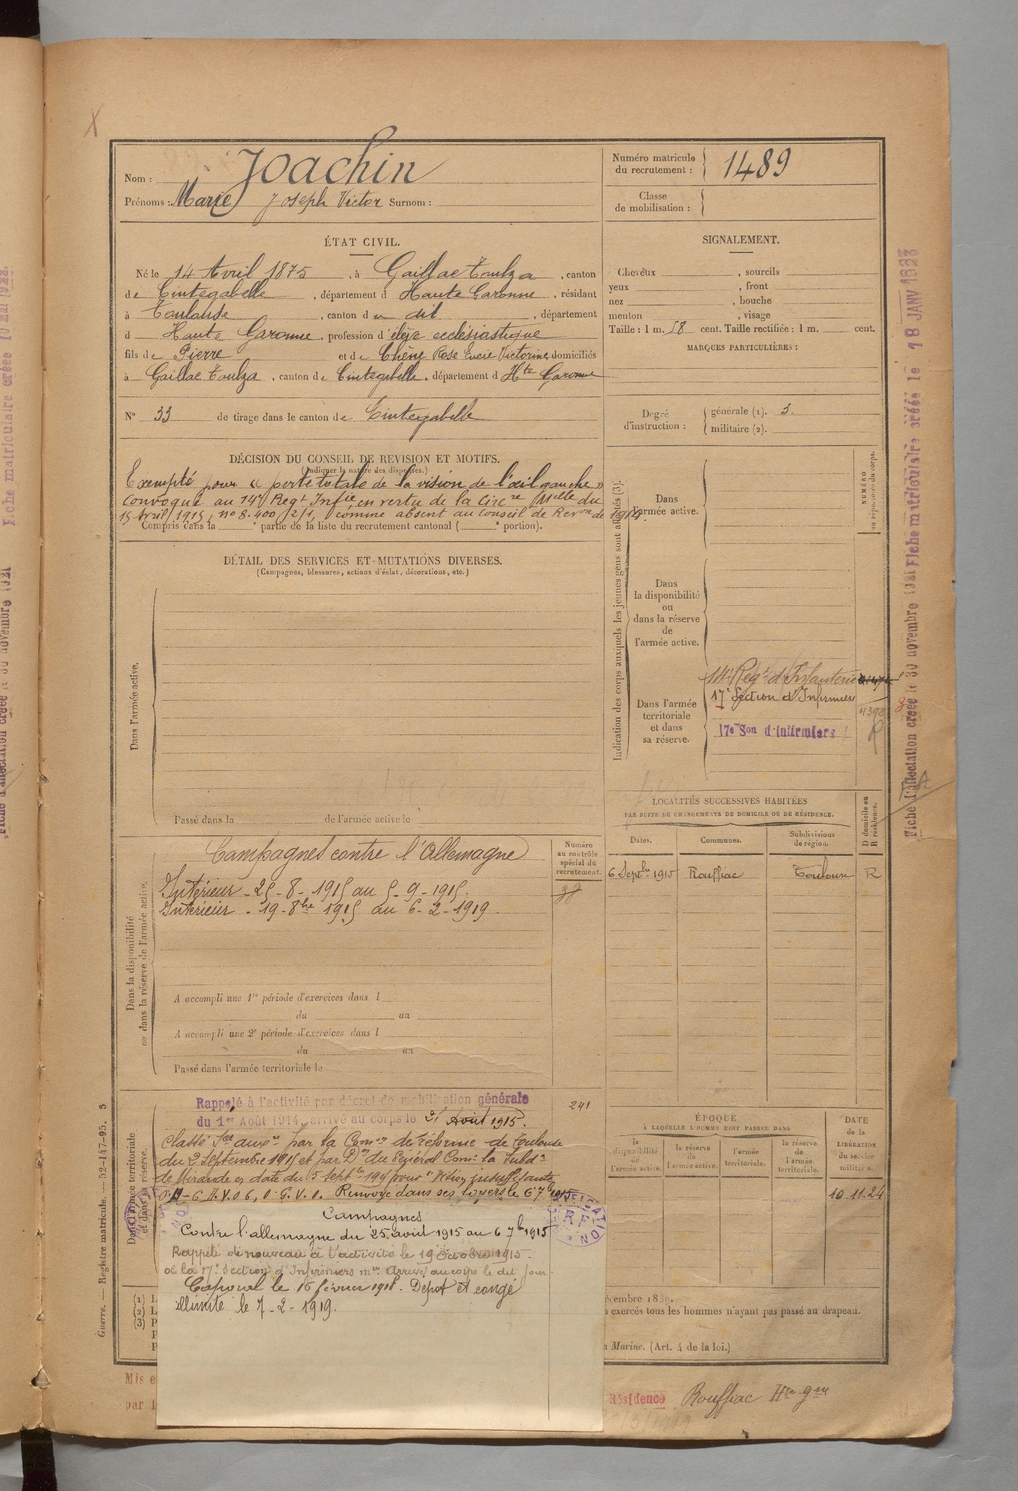 Nom : Joachin
Prénoms : Marie Joseph Victor Surnom :
Numéro matricule du recrutement : 1489
Classe de mobilisation :
ÉTAT CIVIL.
Né le 14 Avril 1875, à Gaillac Toulza, canton
de Cintegabelle, département d Haute Garonne, résidant
à Toulouse, canton d u dit, département
d Haute Garonne, profession d'élève ecclésiastique
fils de Pierre et de Chêne Rose Lucie Victorine, domiciliés
à Gaillac Toulza, canton de Cintegabelle, département d Hte Garonne
N° 33 de tirage dans le canton de Cintegabelle
SIGNALEMENT.
Cheveux , sourcils
yeux , front
nez , bouche
menton , visage
Taille : 1 m. 58 cent. Taille rectifiée : 1 m. cent.
MARQUES PARTICULIÈRES :
Degré d'instruction : générale (1). 3.
militaire (2).
DÉCISION DU CONSEIL DE REVISION ET MOTIFS.
(Indiquer la nature des dispenses.)
Exempté pour « perte totale de la vision de l'œil gauche »
Convoqué au 14e Regt Infie en vertu de la Circre Mielle du
15 Avril 1915, n° 8.400 /2/1, comme absent au Conseil de Reven de 1914.
Compris dans la e partie de la liste du recrutement cantonal ( e portion).
DÉTAIL DES SERVICES ET MUTATIONS DIVERSES.
(Campagnes, blessures, actions d'éclat, décorations, etc.)
Dans l'armée active.
Passé dans la de l'armée active le
Indication des corps auxquels les jeunes gens sont affectés (3).
NUMÉRO au répertoire du corps.
Dans l'armée active.
Dans la disponibilité ou dans la réserve de l'armée active.
Dans l'armée territoriale et dans sa réserve.
14e Regt d'Infanterie
17e Section d'Infirmiers
17e Son d'Infirmiers
R
LOCALITÉS SUCCESSIVES HABITÉES
PAR SUITE DE CHANGEMENTS DE DOMICILE OU DE RÉSIDENCE.
Dates. Communes. Subdivisions de région. D domicile ou R résidence.
6 Septbre 1915 Rouffiac Toulouse R
Dans la disponibilité ou dans la réserve de l'armée active.
Numéro au contrôle spécial du recrutement.
Campagnes contre l'Allemagne
Intérieur - 25 - 8 - 1915 au 5 - 9 - 1915.
Intérieur - 19 - 8bre 1915 au 6 - 2 - 1919.
A accompli une 1re période d'exercices dans l
du au
A accompli une 2e période d'exercices dans l
du au
Passé dans l'armée territoriale le
Dans l'armée territoriale et dans sa réserve.
241
Rappelé à l'activité par décret de mobilisation générale
du 1er Août 1914, arrivé au corps le 25 Août 1915.
Classé Sce auxre par la Comon de réforme de Toulouse
du 2 Septembre 1915 et par Don du Général Comt la Subdon
de Mirande en date du 5 Septbre 1915 pour "Vision insuffisante
O.D - 6. Renvoyé dans ses foyers le 6 7bre 1915
Campagnes
Contre l'allemagne du 25 août 1915 au 6 7bre 1915
Rappelé de nouveau à l'activité le 19 octobre 1915.
à la 17e Section d'Infirmiers mres Arrivé au corps le dit jour
Caporal le 16 février 1918. Dépôt et congé
illimité le 7-2-1919.
ÉPOQUE
À LAQUELLE L'HOMME DOIT PASSER DANS
la disponibilité de l'armée active. la réserve de l'armée active. l'armée territoriale. la réserve de l'armée territoriale.
DATE de la LIBÉRATION du service militaire.
10.11.24
exercés tous les hommes n'ayant pas passé au drapeau.
Marine. (Art. 4 de la loi.)
(1)
(2)
(3)
Mis e
par
Résidence Rouffiac Hte Gne
Guerre. — Registre matricule. — 52-147-95. 3
Fiche d'affectation créée le 30 novembre 1921
Fiche matriculaire créée le 18 JANV 1923